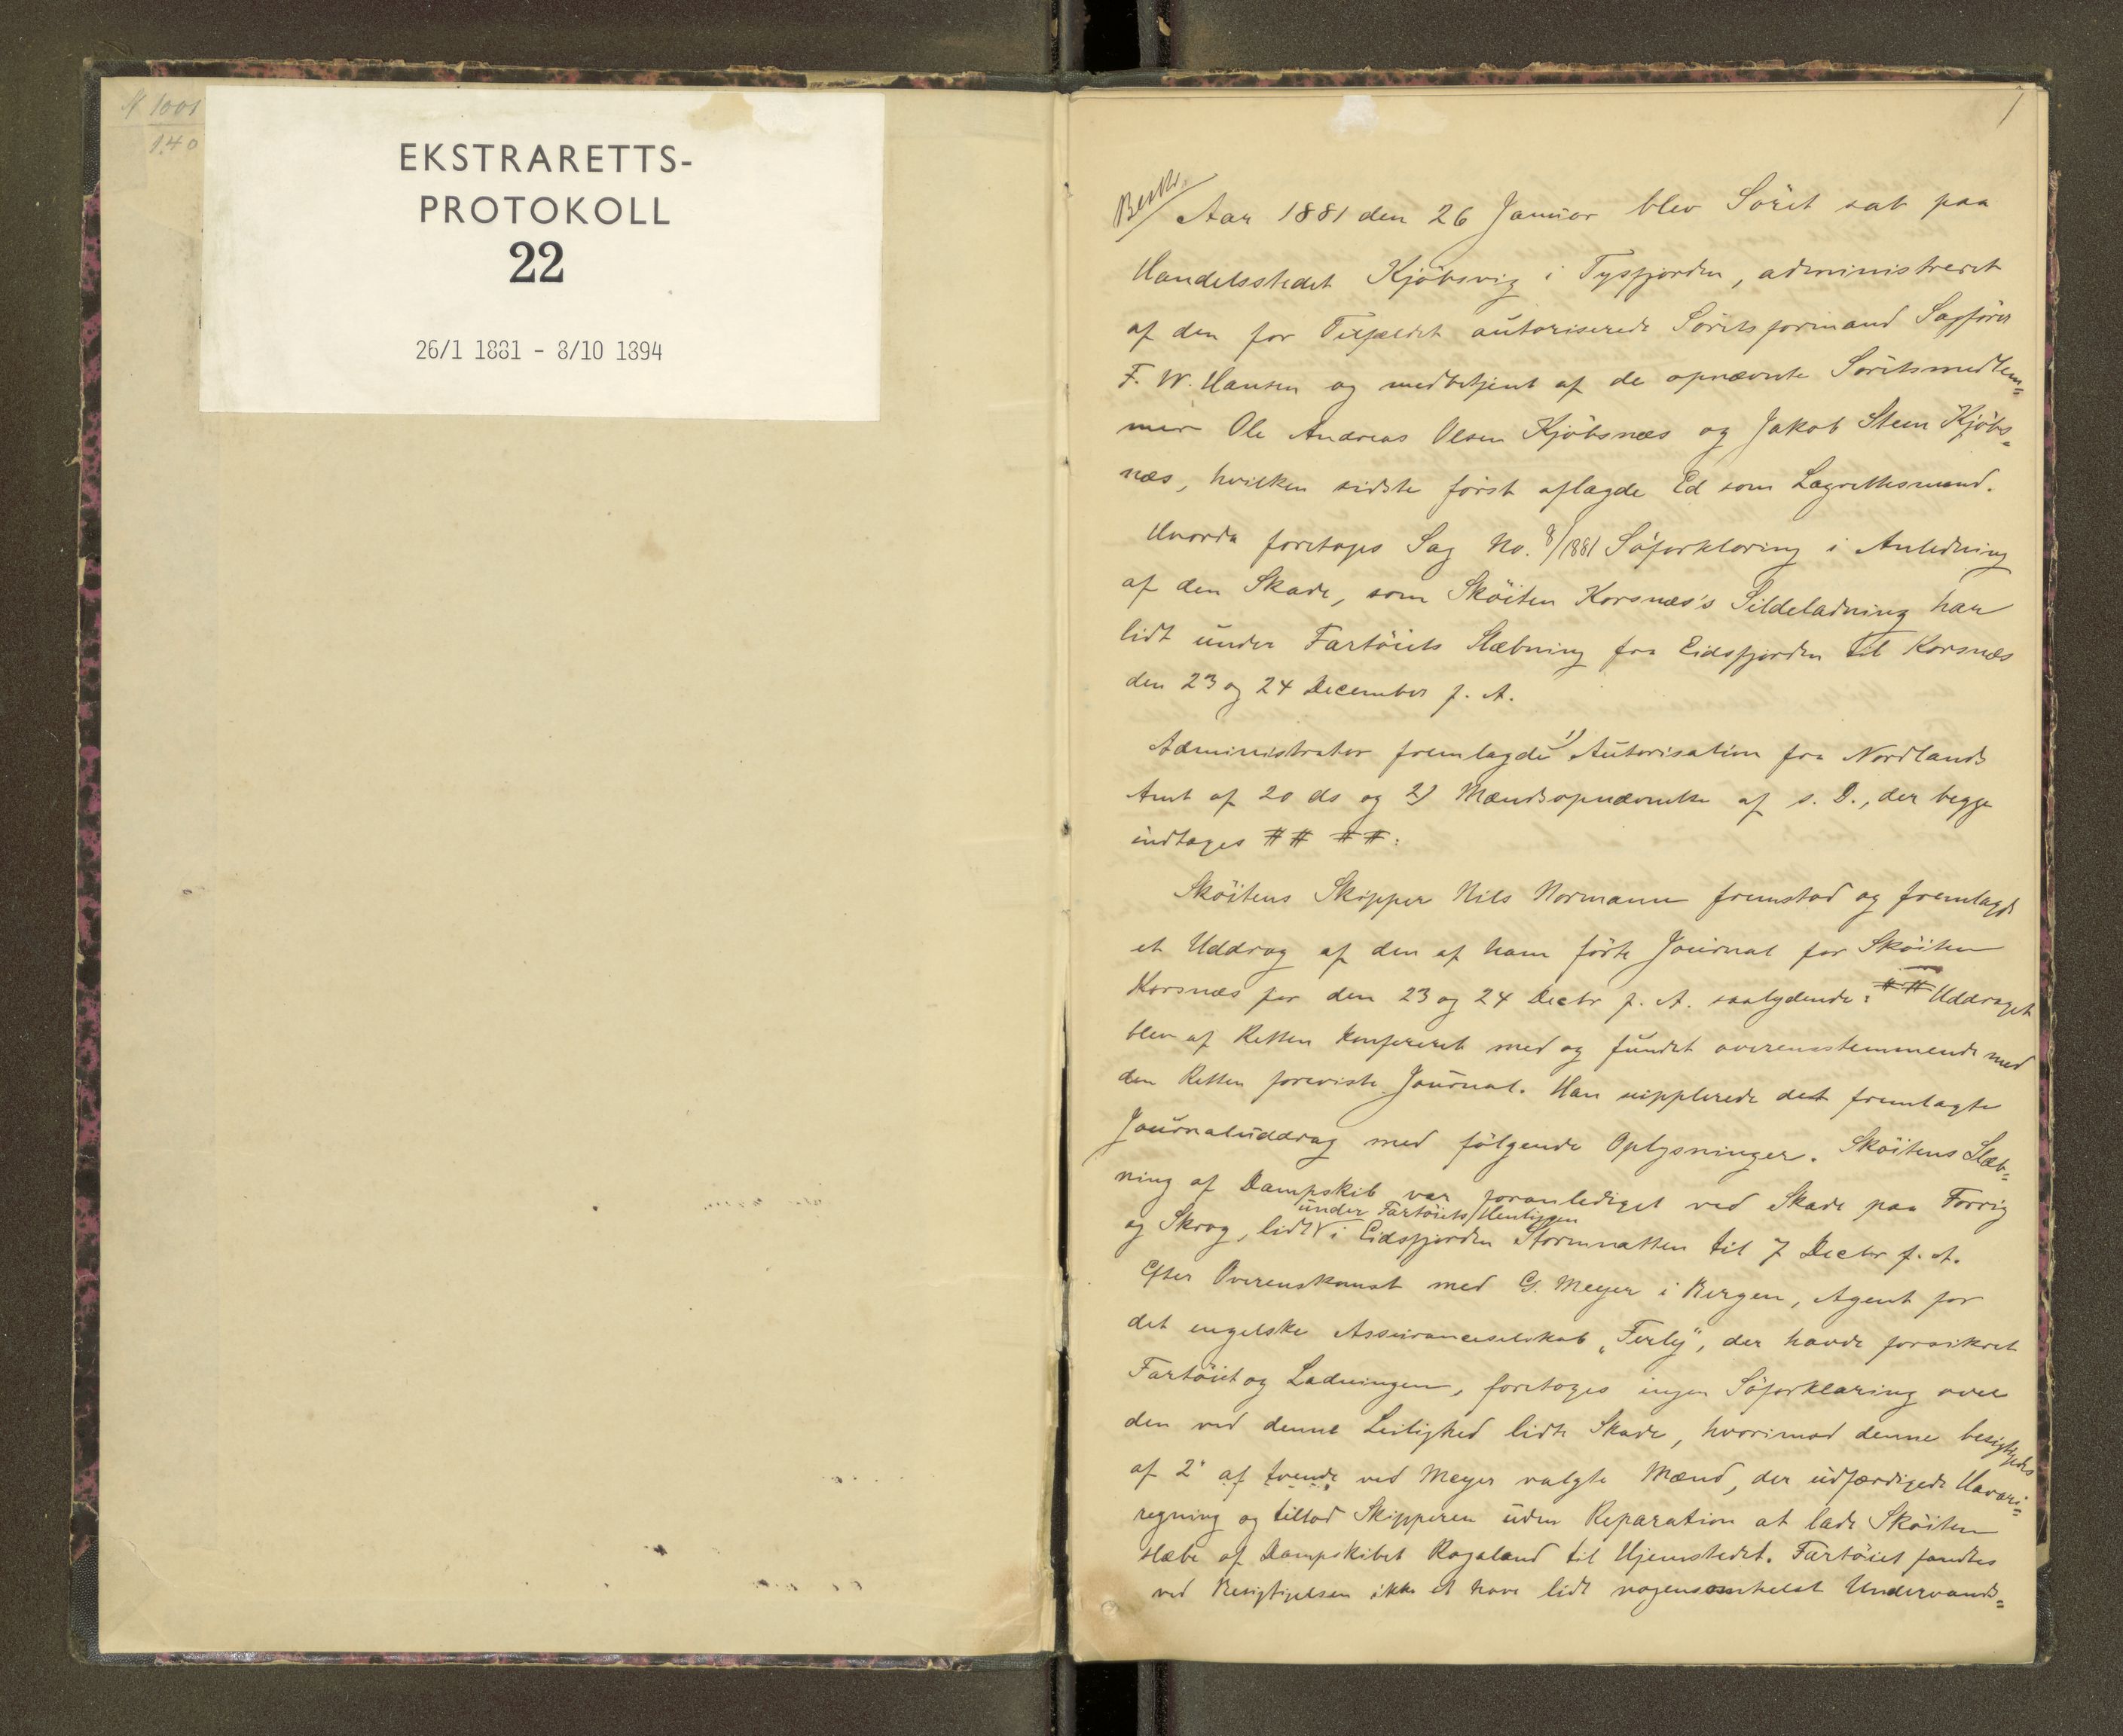 N 1001
140
EKSTRARETTS-
PROTOKOLL
22
26/1 1881 - 8/10 1894
1
Beskr.
Aar 1881 den 26 Januar blev Söret sat paa
Handelsstedet Kjöbsvig i Tysfjorden, administreret
af den for Tilfældet autoriserede Söretsformand Sagförer
F. W. Hansen og medbetjent af de opnævnte Söretsmedlem=
mer Ole Andreas Olsen Kjöbsnæs og Jakob Steen Kjöbs=
næs, hvilken sidste först aflagde Ed som Lagrettesmand.
Hvorda foretoges Sag No. 8/1881 Söforklaring i Anledning
af den Skade, som Sköiten Korsnæs's Sildeladning har
lidt under Fartöiets Slæbning fra Eidsfjorden til Korsnæs
den 23 og 24 December f. A.
Administrator fremlagde 1) Autorisation fra Nordlands
Amt af 20 ds og 2) Mandsopnævnelse af s. D., der begge
indtages # # # #:
Sköitens Skipper Nils Normann fremstod og fremlagde
et Uddrag af den af ham förte Journal for Sköiten
Korsnæs for den 23 og 24 Decbr f. A. saalydende: # # Uddraget
blev af Retten konfereret med og fundet overensstemmende med
den Retten foreviste Journal. Han supplerede det fremlagte
Journaluddrag med fölgende Oplysninger. Sköitens Slæb=
ning af Dampskib var foranlediget ved Skade paa Forrig
under Fartöiets Henliggen
og Skrog, lidt i Eidsfjorden Stormnatten til 7 Decbr f. A.
Efter Overenskomst med G. Meyer i Bergen, Agent for
det engelske Assuranceselskab „Ferly“, der havde forsikret
Fartöiet og Ladningen, foretoges ingen Söforklaring over
den ved denne Leilighed lidte Skade, hvorimod denne besigtigedes
af 2 af tvende ved Meyer valgte Mænd, der udfærdigede Havari=
regning og tillod Skipperen uden Reparation at lade Sköiten
slæbe af Dampskibet Rogaland til Hjemstedet. Fartöiet fandtes
ved Besigtigelsen ikke at have lidt nogensomhelst Undervands=